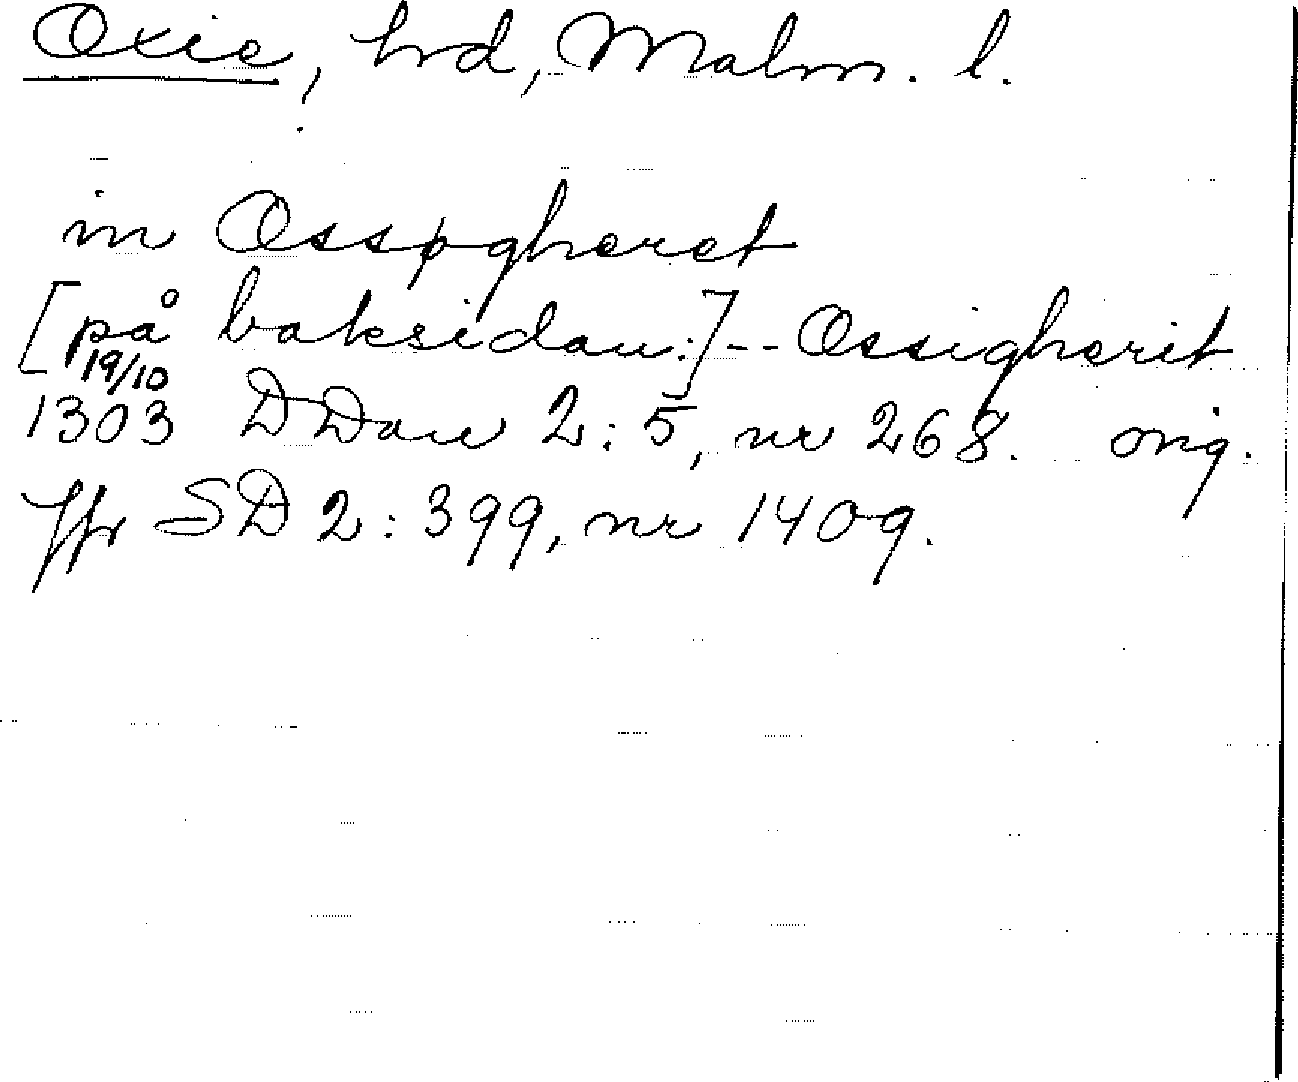 Oxie, hrd, Malm. l.
in Ossøgheret
[på baksidan:]-- Ossigherit
19/10
1303 DDan 2:5, nr 268. orig.
Jfr SD 2:399, nr 1409.